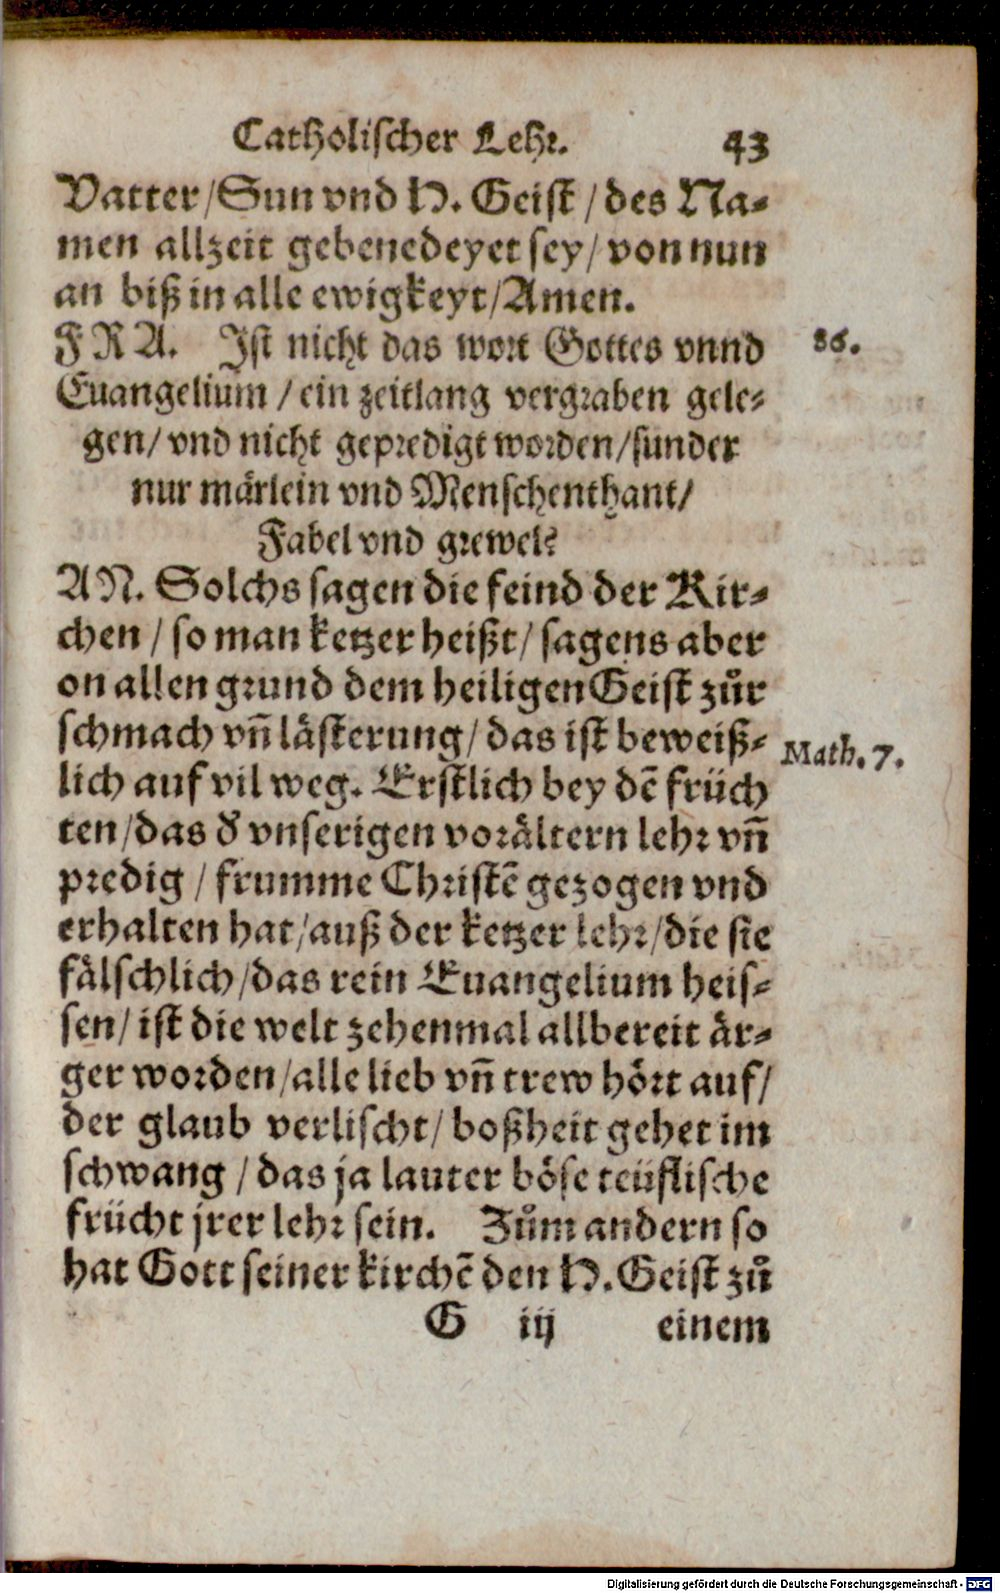 Catholischer Lehr. 43
Vatter/Sun vnd H. Geist/des Na-
men allzeit gebenedeyet sey/von nun
an biß in alle ewigkeyt/Amen.
FRA. Ist nicht das wort Gottes vnnd 86.
Euangelium/ein zeitlang vergraben gele-
gen/vnd nicht gepredigt worden/sunder
nur märlein vnd Menschenthant/
Fabel vnd grewel?
AN. Solchs sagen die feind der Kir-
chen/so man ketzer heißt/sagens aber
on allen grund dem heiligen Geist zůr
schmach vñ lästerung/das ist beweiß- Math. 7.
lich auf vil weg. Erstlich bey dẽ früch
ten/das d' vnserigen vorältern lehr vñ
predig/frumme Christẽ gezogen vnd
erhalten hat/auß der ketzer lehr/die sie
fälschlich/das rein Euangelium heis-
sen/ist die welt zehenmal allbereit är-
ger worden/alle lieb vñ trew hört auf/
der glaub verlischt/boßheit gehet im
schwang/das ja lauter böse teüflische
frücht jrer lehr sein. Zům andern so
hat Gott seiner kirchẽ den H. Geist zů
G iij einem
Digitalisierung gefördert durch die Deutsche Forschungsgemeinschaft - DFG